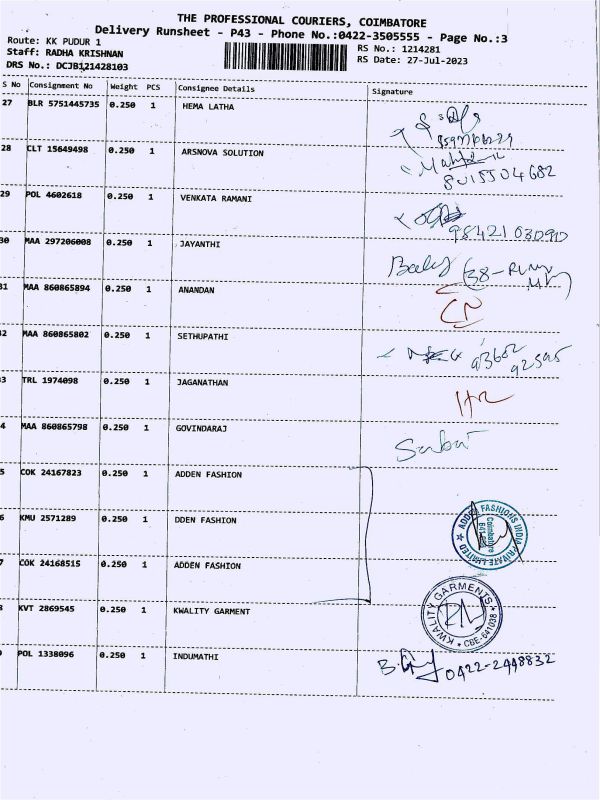 THE PROFESSIONAL COURIERS, COIMBATORE
Delivery Runsheet - P43 - Phone No.:0422-3505555 - Page No.:3
Route: KK PUDUR 1
Staff: RADHA KRISHNAN
DRS No.: DCJB121428103
RS No.: 1214281
RS Date: 27-Jul-2023
S No Consignment No Weight PCS Consignee Details Signature
27 BLR 5751445735 0.250 1 HEMA LATHA
28 CLT 15649498 0.250 1 ARSNOVA SOLUTION
8015504682
29 POL 4602618 0.250 1 VENKATA RAMANI
9842103090
30 MAA 297206008 0.250 1 JAYANTHI
31 MAA 860865894 0.250 1 ANANDAN
2 MAA 860865802 0.250 1 SETHUPATHI
93602
92595
3 TRL 1974098 0.250 1 JAGANATHAN
4 MAA 860865798 0.250 1 GOVINDARAJ
5 COK 24167823 0.250 1 ADDEN FASHION
6 KMU 2571289 0.250 1 DDEN FASHION
ADDEN FASHIONS INDIA PRIVATE LIMITED
Coimbatore
7 COK 24168515 0.250 1 ADDEN FASHION
8 KVT 2869545 0.250 1 KWALITY GARMENT
KWALITY GARMENTS
CBE-641038
9 POL 1338096 0.250 1 INDUMATHI
0422-2448832